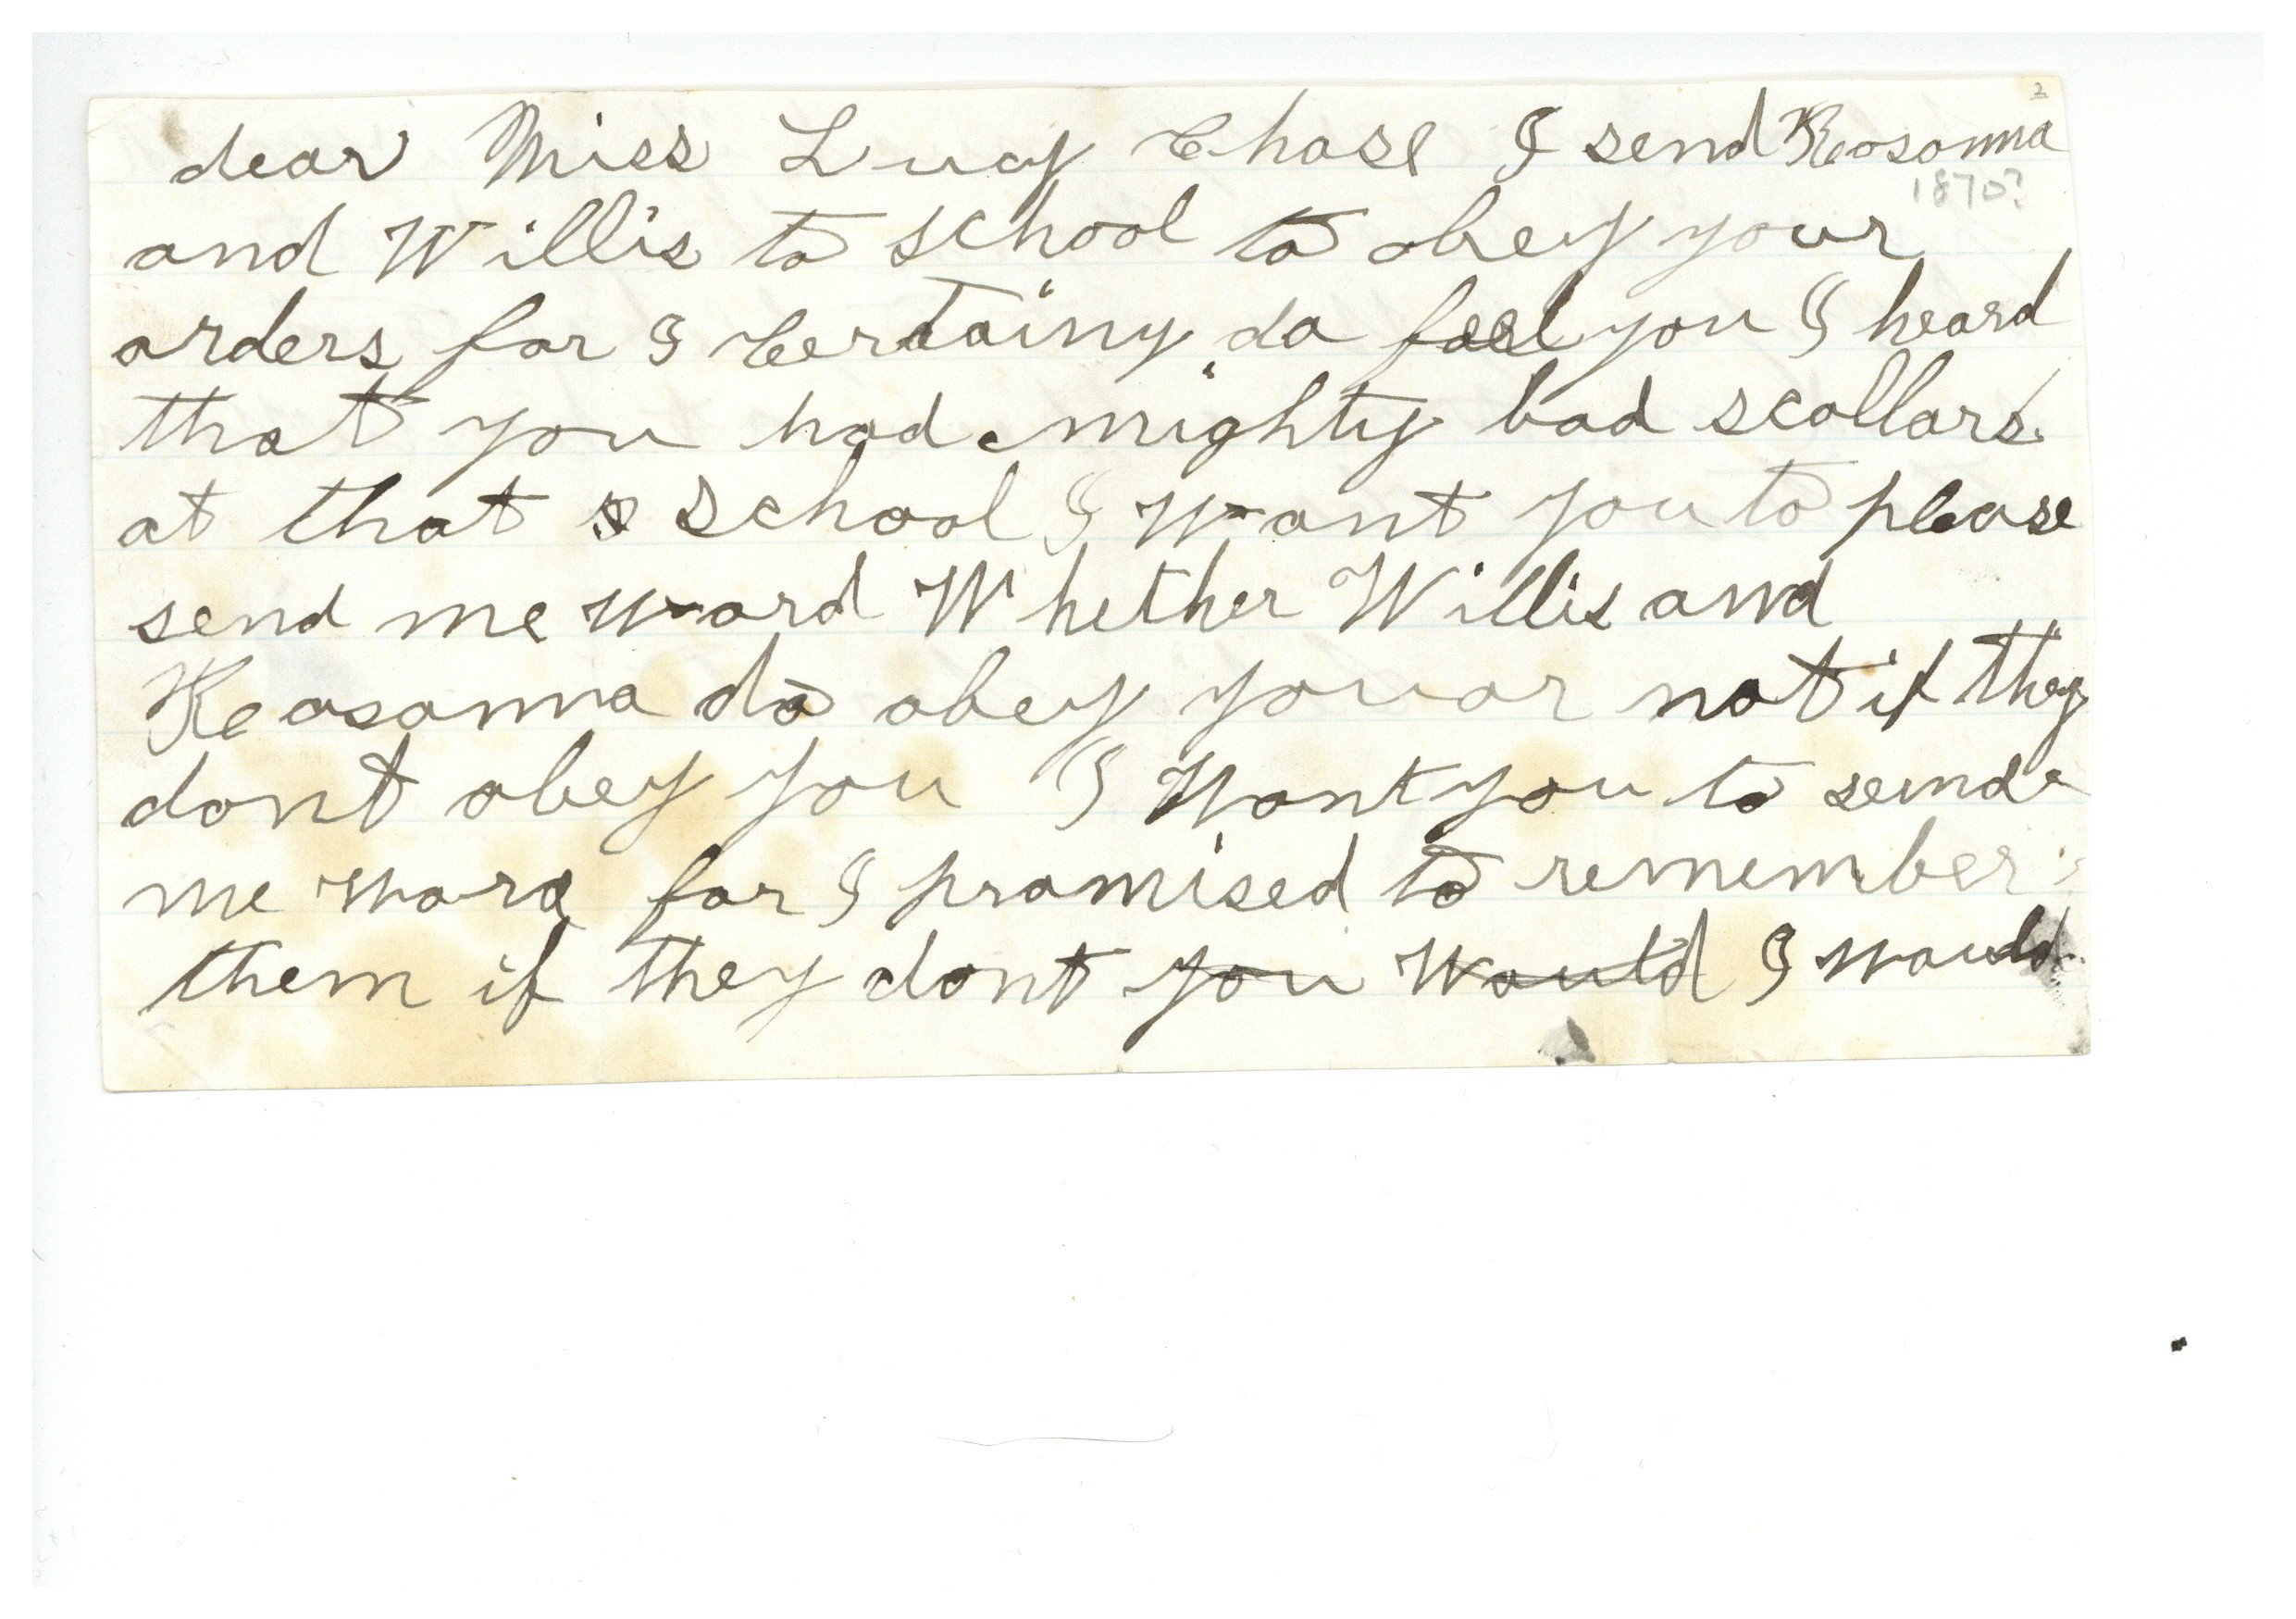 2
dear Miss Lucy Chase I send Reosanna
1870?
and Willis to school to obey your
orders for I Certainy do feel you I heard
that you had mighty bad scollars
at that s school I want you to please
send me word Whether Willis and
Reosanna do obey you or not if they
dont obey you I Want you to send
me word for I promised to remember
them if they dont you Would I would